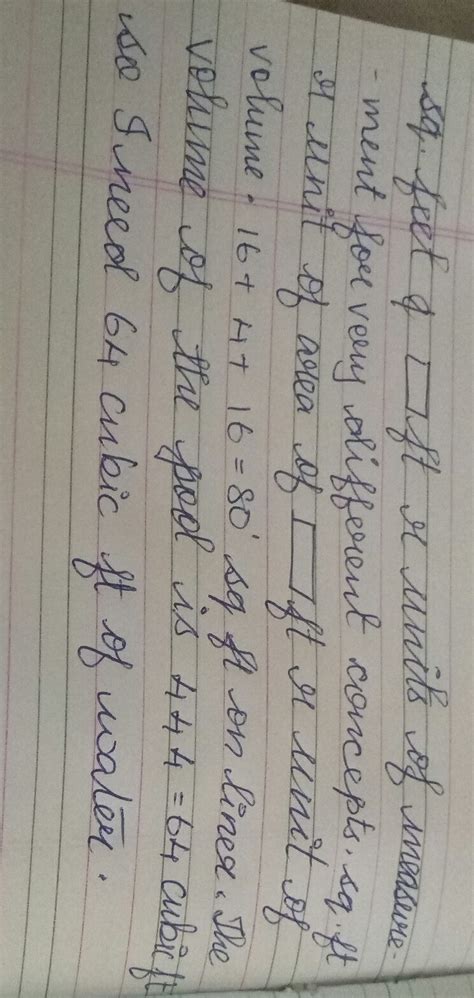 sq. feet & □ ft r units of measure-
-ment for very different concepts. sq. ft
r unit of area of □ ft r unit of
volume. 16 + 4 + 16 = 80 sq ft on liner. The
volume of the pool is 4 4 4 = 64 cubic ft
so I need 64 cubic ft of water.